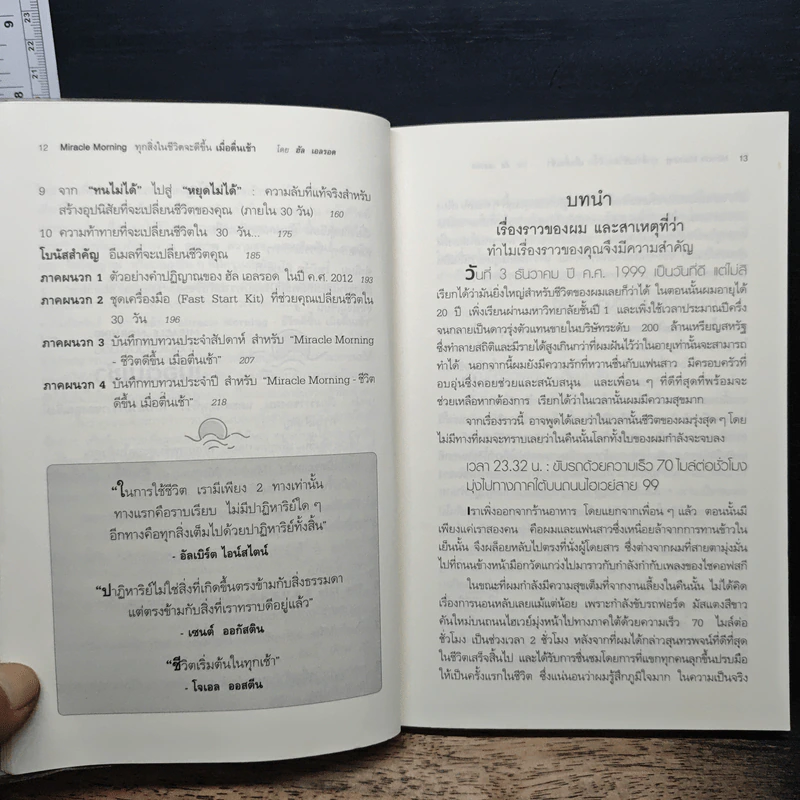 9
23
22
21
8
12 Miracle Morning ทุกสิ่งในชีวิตจะดีขึ้น เมื่อตื่นเช้า โดย ฮัล เอลรอด
9 จาก “ทนไม่ได้” ไปสู่ “หยุดไม่ได้” : ความลับที่แท้จริงสำหรับ
สร้างอุปนิสัยที่จะเปลี่ยนชีวิตของคุณ (ภายใน 30 วัน) 160
10 ความท้าทายที่จะเปลี่ยนชีวิตใน 30 วัน... 175
โบนัสสำคัญ อีเมลที่จะเปลี่ยนชีวิตคุณ 185
ภาคผนวก 1 ตัวอย่างคำปฏิญาณของ ฮัล เอลรอด ในปี ค.ศ. 2012 193
ภาคผนวก 2 ชุดเครื่องมือ (Fast Start Kit) ที่ช่วยคุณเปลี่ยนชีวิตใน
30 วัน 196
ภาคผนวก 3 บันทึกทบทวนประจำสัปดาห์ สำหรับ “Miracle Morning
- ชีวิตดีขึ้น เมื่อตื่นเช้า” 207
ภาคผนวก 4 บันทึกทบทวนประจำปี สำหรับ “Miracle Morning - ชีวิต
ดีขึ้น เมื่อตื่นเช้า” 218
“ในการใช้ชีวิต เรามีเพียง 2 ทางเท่านั้น
ทางแรกคือราบเรียบ ไม่มีปาฏิหาริย์ใด ๆ
อีกทางคือทุกสิ่งเต็มไปด้วยปาฏิหาริย์ทั้งสิ้น”
- อัลเบิร์ต ไอน์สไตน์
“ปาฏิหาริย์ไม่ใช่สิ่งที่เกิดขึ้นตรงข้ามกับสิ่งธรรมดา
แต่ตรงข้ามกับสิ่งที่เราทราบดีอยู่แล้ว”
- เซนต์ ออกัสติน
“ชีวิตเริ่มต้นในทุกเช้า”
- โจเอล ออสตีน
13
บทนำ
เรื่องราวของผม และสาเหตุที่ว่า
ทำไมเรื่องราวของคุณจึงมีความสำคัญ
วันที่ 3 ธันวาคม ปี ค.ศ. 1999 เป็นวันที่ดี แต่ไม่สิ
เรียกได้ว่ามันยิ่งใหญ่สำหรับชีวิตของผมเลยก็ว่าได้ ในตอนนั้นผมอายุได้
20 ปี เพิ่งเรียนผ่านมหาวิทยาลัยชั้นปี 1 และเพิ่งใช้เวลาประมาณปีครึ่ง
จนกลายเป็นดาวรุ่งตัวแทนขายในบริษัทระดับ 200 ล้านเหรียญสหรัฐ
ซึ่งทำลายสถิติและมีรายได้สูงเกินกว่าที่ผมฝันไว้ว่าในอายุเท่านั้นจะสามารถ
ทำได้ นอกจากนี้ผมยังมีความรักที่หวานชื่นกับแฟนสาว มีครอบครัวที่
อบอุ่นซึ่งคอยช่วยและสนับสนุน และเพื่อน ๆ ที่ดีที่สุดที่พร้อมจะ
ช่วยเหลือหากต้องการ เรียกได้ว่าในเวลานั้นผมมีความสุขมาก
จากเรื่องราวนี้ อาจพูดได้เลยว่าในเวลานั้นชีวิตของผมรุ่งสุด ๆ โดย
ไม่มีทางที่ผมจะทราบเลยว่าในคืนนั้นโลกทั้งใบของผมกำลังจะจบลง
เวลา 23.32 น. : ขับรถด้วยความเร็ว 70 ไมล์ต่อชั่วโมง
มุ่งไปทางภาคใต้บนถนนไฮเวย์สาย 99
เราเพิ่งออกจากร้านอาหาร โดยแยกจากเพื่อน ๆ แล้ว ตอนนั้นมี
เพียงแค่เราสองคน คือผมและแฟนสาวซึ่งเหนื่อยล้าจากการทานข้าวใน
เย็นนั้น จึงผล็อยหลับไปตรงที่นั่งผู้โดยสาร ซึ่งต่างจากผมที่สายตามุ่งมั่น
ไปที่ถนนข้างหน้ามือกวัดแกว่งไปมาราวกับกำลังกำกับเพลงของไชคอฟสกี
ในขณะที่ผมกำลังมีความสุขเต็มที่จากงานเลี้ยงในคืนนั้น ไม่ได้คิด
เรื่องการนอนหลับเลยแม้แต่น้อย เพราะกำลังขับรถฟอร์ด มัสแตงสีขาว
คันใหม่บนถนนไฮเวย์มุ่งหน้าไปทางภาคใต้ด้วยความเร็ว 70 ไมล์ต่อ
ชั่วโมง เป็นช่วงเวลา 2 ชั่วโมง หลังจากที่ผมได้กล่าวสุนทรพจน์ที่ดีที่สุด
ในชีวิตเสร็จสิ้นไป และได้รับการชื่นชมโดยการที่แขกทุกคนลุกขึ้นปรบมือ
ให้เป็นครั้งแรกในชีวิต ซึ่งแน่นอนว่าผมรู้สึกภูมิใจมาก ในความเป็นจริง